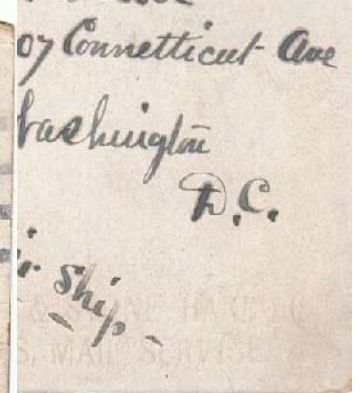 07 Connetticut Ave
Washington
D.C.
Ship
MAIL SERVICE